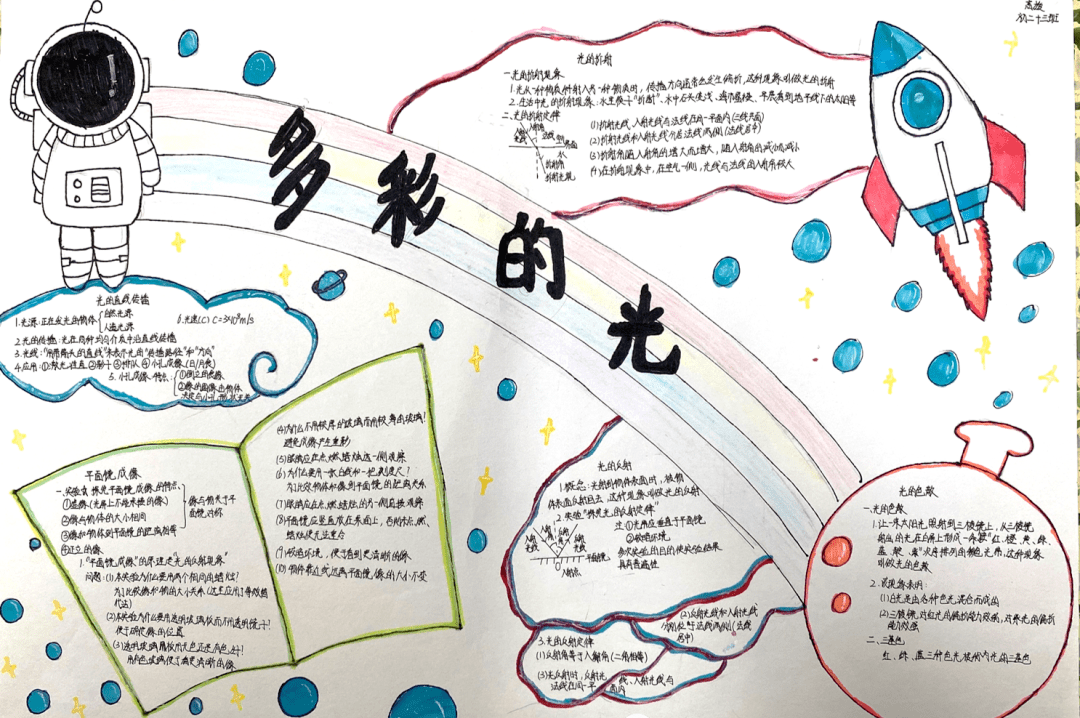 初二十三班
多彩的光
光的直线传播
1.光源:正在发光的物体
自然光源
人造光源
6.光速(C) C=3×10⁸m/s
2.光的传播:光在同种均匀介质中沿直线传播
3.光线:"用带箭头的直线"来表示光的"传播路径"和"方向"
4.应用:①激光准直②影子③排队④小孔成像(日/月食)
5.小孔成像特点:
①倒立的实像
光的折射
一.光的折射现象
1.光从一种物质斜射入另一种物质时,传播方向通常会发生偏折,这种现象叫做光的折射
2.生活中光的折射现象:水里筷子"折断"、水中石头变浅、海市蜃楼、早晨看到地平线下的太阳等
二.光的折射定律
入射光线
入射角
法线
空气
界面
水
折射角
折射光线
(1)折射光线、入射光线与法线在同一平面内(三线共面)
(2)折射光线和入射光线分居法线两侧(法线居中)
(3)折射角随入射角的增大而增大,随入射角的减小而减小
(4)在折射现象中,在空气一侧,光线与法线的夹角较大
平面镜成像
一.实验前 探究平面镜成像的特点、
①虚像(光屏上不能承接的像)
②像与物体的大小相同
③像和物体到平面镜的距离相等
④正立的像
像与物关于平面镜对称
1."平面镜成像"的原理是"光的反射现象"
问题:(1)本实验为什么要用两个相同的蜡烛?
为了比较像和物的大小关系(这里应用了等效替代法)
(2)本实验为什么要用透明玻璃板而不用透的镜子?
便于确定像的位置
(4)为什么不用较厚的玻璃而用较薄的玻璃?
避免成像产生重影)
(5)眼睛应在点燃蜡烛这一侧观察
(6)为什么要用一张白纸和一把刻度尺?
为了比较物体和像到平面镜的距离关系
(7)眼睛应在未燃蜡烛的另一侧直接观察
(8)平面镜应竖直放在桌面上,否则未点燃
蜡烛使无法重合
(9)较暗环境,便于看到更清晰的像
(10)物体靠近或远离平面镜,像的大小不变
光的反射
1.概念:光射到物体表面时,被物
体表面反射回去,这种现象叫做光的反射
2.实验"探究光的反射定律"
过①光屏应垂直于平面镜
②较暗环境
多次实验的目的使实验结果
具有普遍性
平面镜
入射点
3.光的反射定律
(1)反射角等于入射角(二角相等)
(2)反射光线和入射光线
分别位于法线两侧(法线
居中)
(3)光反射时,反射光线、入射光线与
法线在同一平面内
光的色散
一.光的色散
1.让一束太阳光照射到三棱镜上,从三棱镜
射出的光在白屏上形成一条按"红、橙、黄、绿、
蓝、靛、紫"次序排列的彩色光带,这种现象
叫做光的色散
2.该现象表明:
(1)白光是由各种色光混合而成的
(2)三棱镜,对红光的偏折能力较弱,对紫光的偏折
能力较强
二、三基色
红、绿、蓝三种色光被称为光的三基色